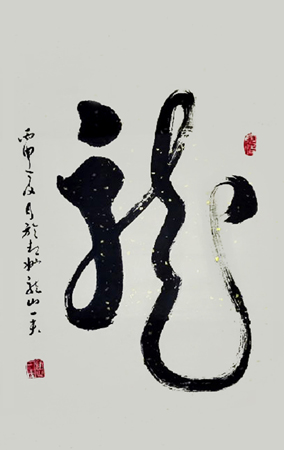 龍
丙申夏月於赵灿龍山一夫